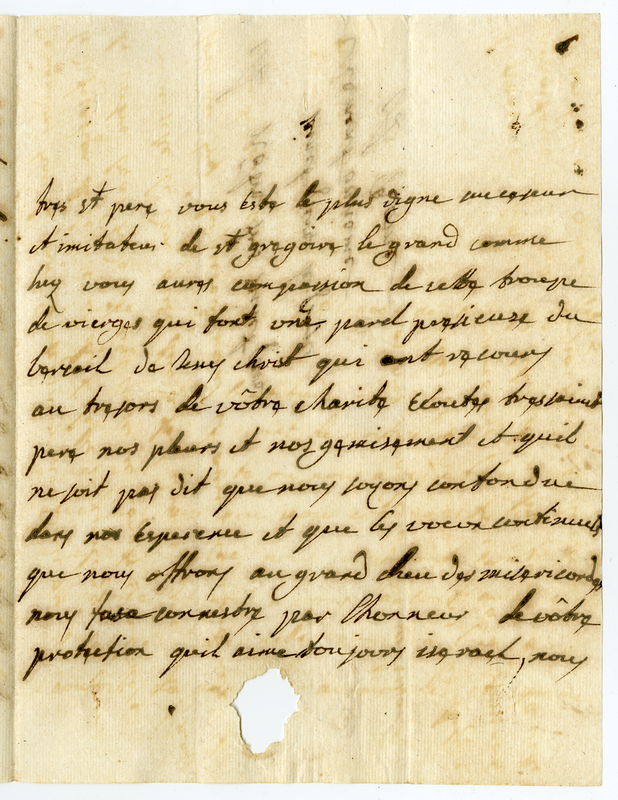 tres st pere vous este le plus digne sucesseur
et imitateur de st gregoire le grand comme
luy vous aures compassion de cette troupe
de vierges qui font une part presieuse du
bercail de Jesus christ qui ont recours
au tresors de vôtre charite Ecoutes tres saint
pere nos pleurs et nos gemisement et quil
ne soit pas dit que nous soyons confondue
dans nos Esperence et que les voeux continuels
que nous offrons au grand dieu des misericordes
nous fase connestre par lhonneur de vôtre
protection quil aime toujours israel, nous